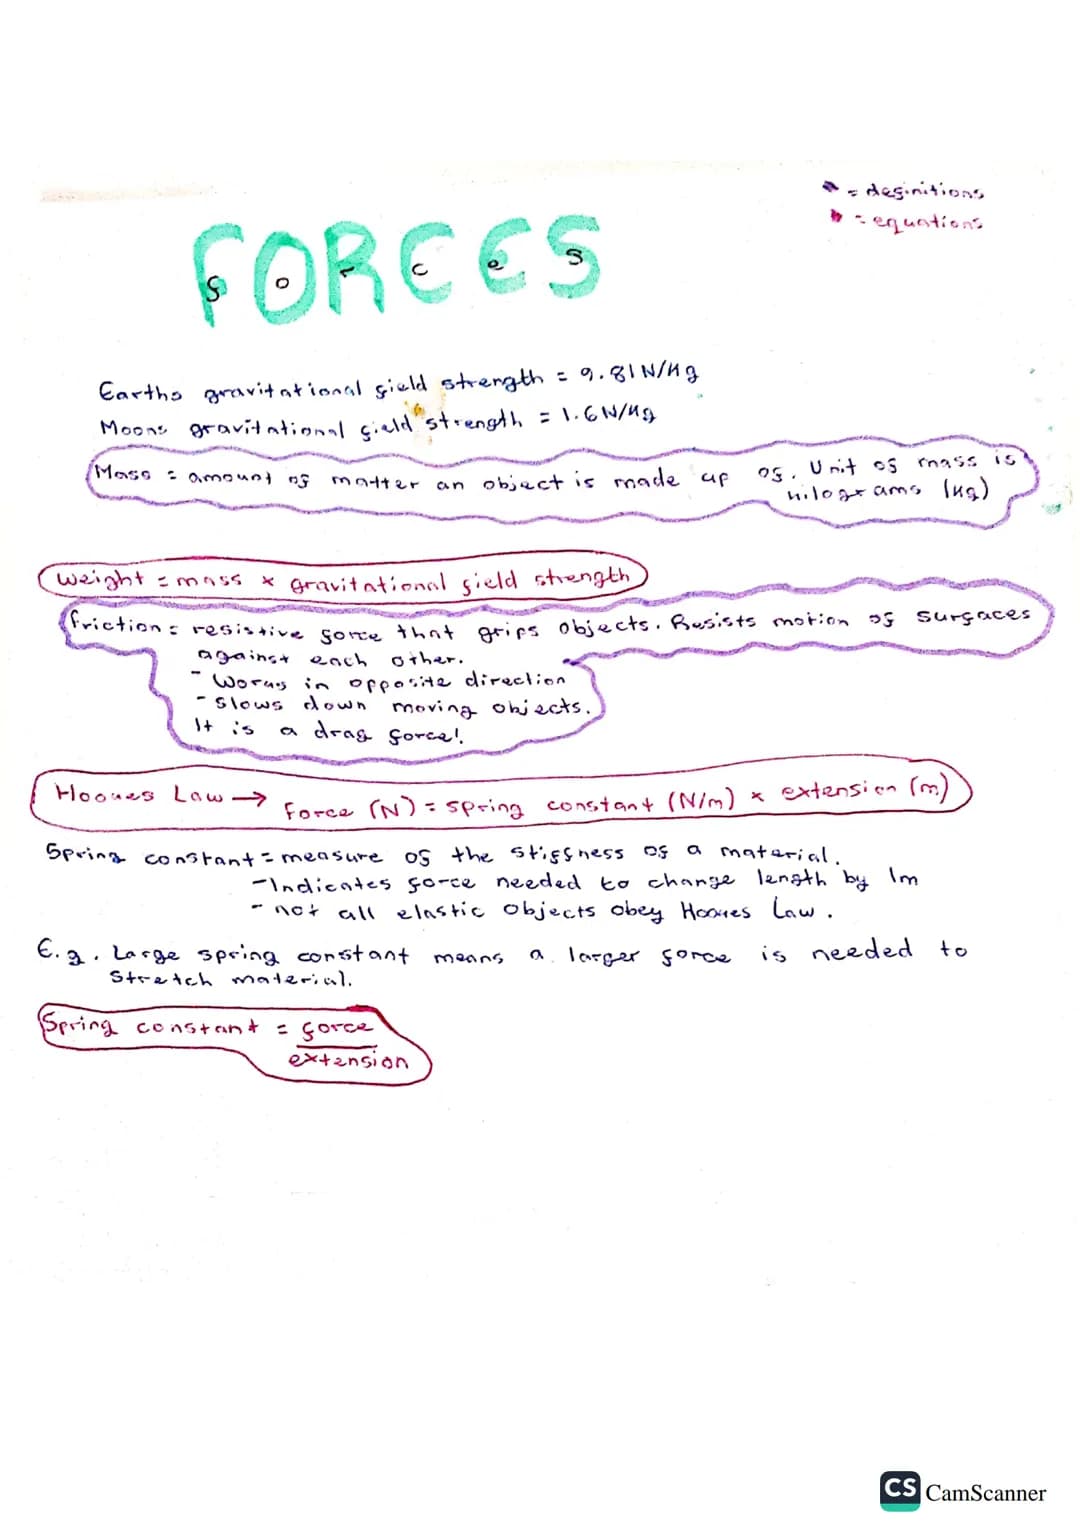 = definitions
= equations
FORCES
forces
Earths gravitational field strength = 9.81N/kg
Moons gravitational field strength = 1.6N/kg
Mass = amount of matter an object is made up of. Unit of mass is
kilograms (kg)
Weight = mass x gravitational field strength
friction = resistive force that grips objects. Resists motion of surfaces
against each other.
- Works in opposite direction
- Slows down moving objects.
It is a drag force!
Hookes Law → Force (N) = spring constant (N/m) x extension (m)
Spring constant = measure of the stiffness of a material.
- Indicates force needed to change length by 1m
- not all elastic objects obey Hookes Law.
E.g. Large spring constant means a larger force is needed to
stretch material.
Spring constant = force
extension
CS CamScanner